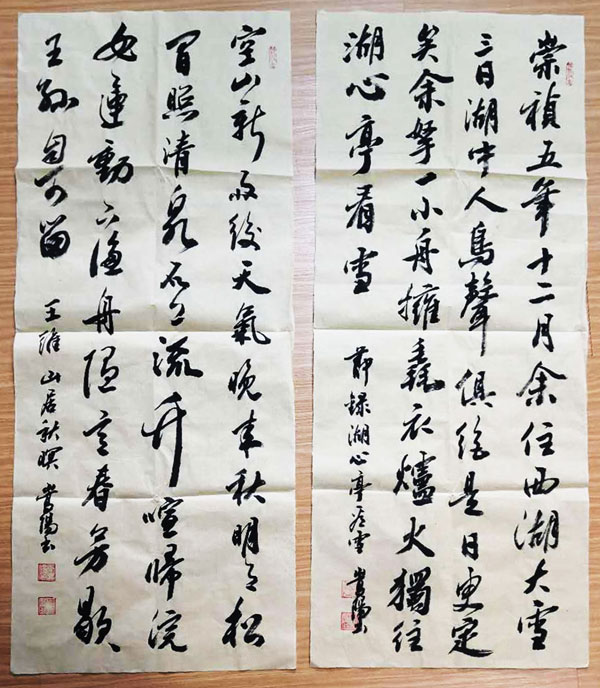 崇禎五年十二月余住西湖大雪
三日湖中人鳥聲俱絕是日更定
矣余拏一小舟擁毳衣爐火獨往
湖心亭看雪
節録湖心亭看雪
空山新雨後天氣晚来秋明月松
間照清泉石上流竹喧歸浣
女蓮動下漁舟隨意春芳歇
王孫自可留
王維山居秋暝